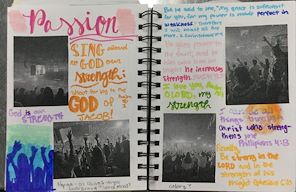 Passion
SING aloud
to GOD our
strength;
Shout for joy to the
GOD OF
JACOB!
God is our
STRENGTH
But he said to me, "My grace is sufficient
for you, for my power is made perfect in
weakness." Therefore
I will boast all
He gives power
to the
he increases
strength.
I love you,
O LORD, my
strength
Christ who streng-
thens me
Philippians 4:13
Finally,
Be strong in the
LORD and in the
strength of his
might Ephesians 6:10